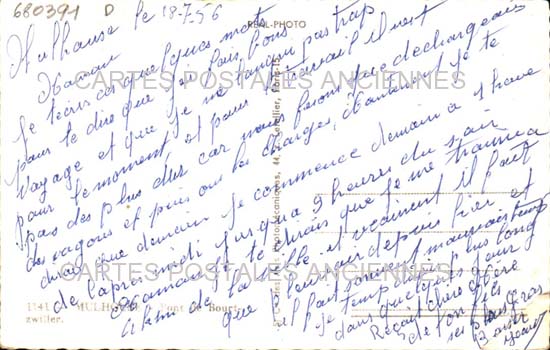 680391 D
Mulhouse le 18-7-56
REAL-PHOTO
Maman
Je t'écris ces quelques mots
pour te dire que j'ai fais bons
voyage et que je me fatigue pas trop
pour le moment, et pour le travail il n'est
pas des plus dur car nous faisons que déchargeais
des wagons et puis on les charges, Maman je te
dirai que demain je commence demain à 1 heure
de l'après midi jusqu'à 9 heures du soir
Maman je te dirais que je me trouve a
4 km de la ville et vraiment il faut
que depuis hier et
il fait vraiment mauvais temps
Je temps plus long
dans quelques jour
Reçoit chère mère
de ton fils
ses plus Gros
Baiser
CARTES POSTALES ANCIENNES
CARTES POSTALES ANCIENNES
1341 MULHOUSE Pont de Bourtz-
zwiller.